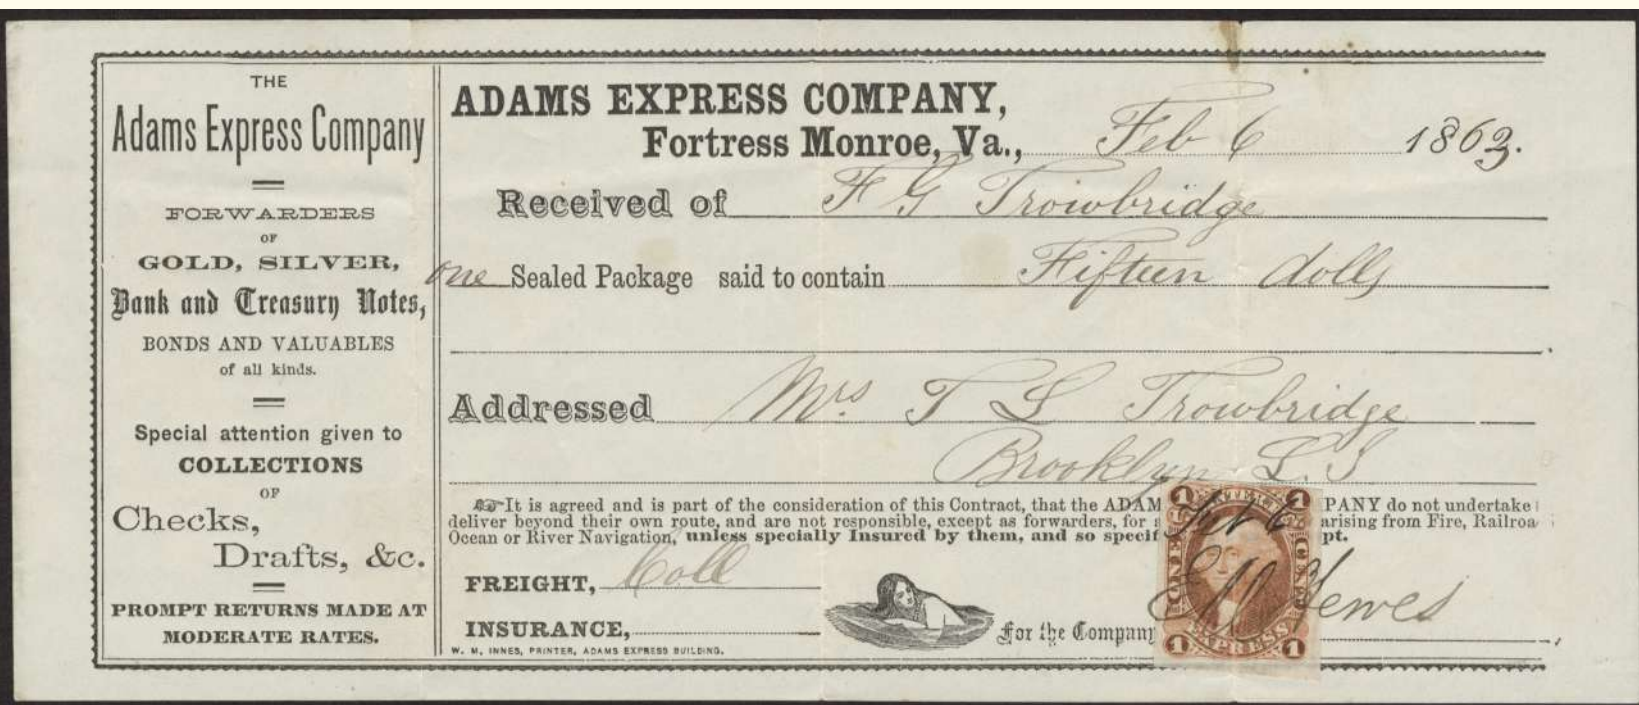 THE
Adams Express Company
FORWARDERS
OF
GOLD, SILVER,
Bank and Treasury Notes,
BONDS AND VALUABLES
of all kinds.
Special attention given to
COLLECTIONS
OF
Checks,
Drafts, &c.
PROMPT RETURNS MADE AT
MODERATE RATES.
ADAMS EXPRESS COMPANY,
Fortress Monroe, Va., Feb 6 1863.
Received of F G Trowbridge
one Sealed Package said to contain Fifteen dolls
Addressed Mrs. T L Trowbridge
Brooklyn L. I
It is agreed and is part of the consideration of this Contract, that the ADAM PANY do not undertake
deliver beyond their own route, and are not responsible, except as forwarders, for arising from Fire, Railroa
Ocean or River Navigation, unless specially Insured by them, and so specif pt.
FREIGHT, Coll
INSURANCE,
For the Company Hewes
W. M. INNES, PRINTER, ADAMS EXPRESS BUILDING.
1 1
Feb 6
EXPRESS
1 1